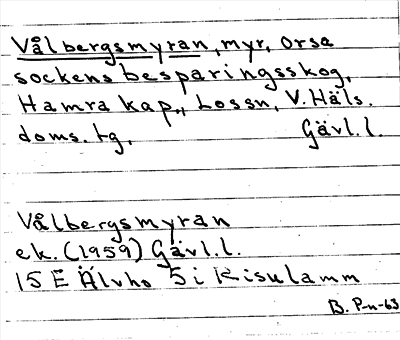 Vålbergsmyran, myr, Orsa
sockens besparingsskog,
Hamra kap., Lossn, V. Häls.
doms. tg, Gävl. l.
Vålbergsmyran
ek. (1959) Gävl. l.
15 E Älvho 5 i Risulamm
B. P-n-63